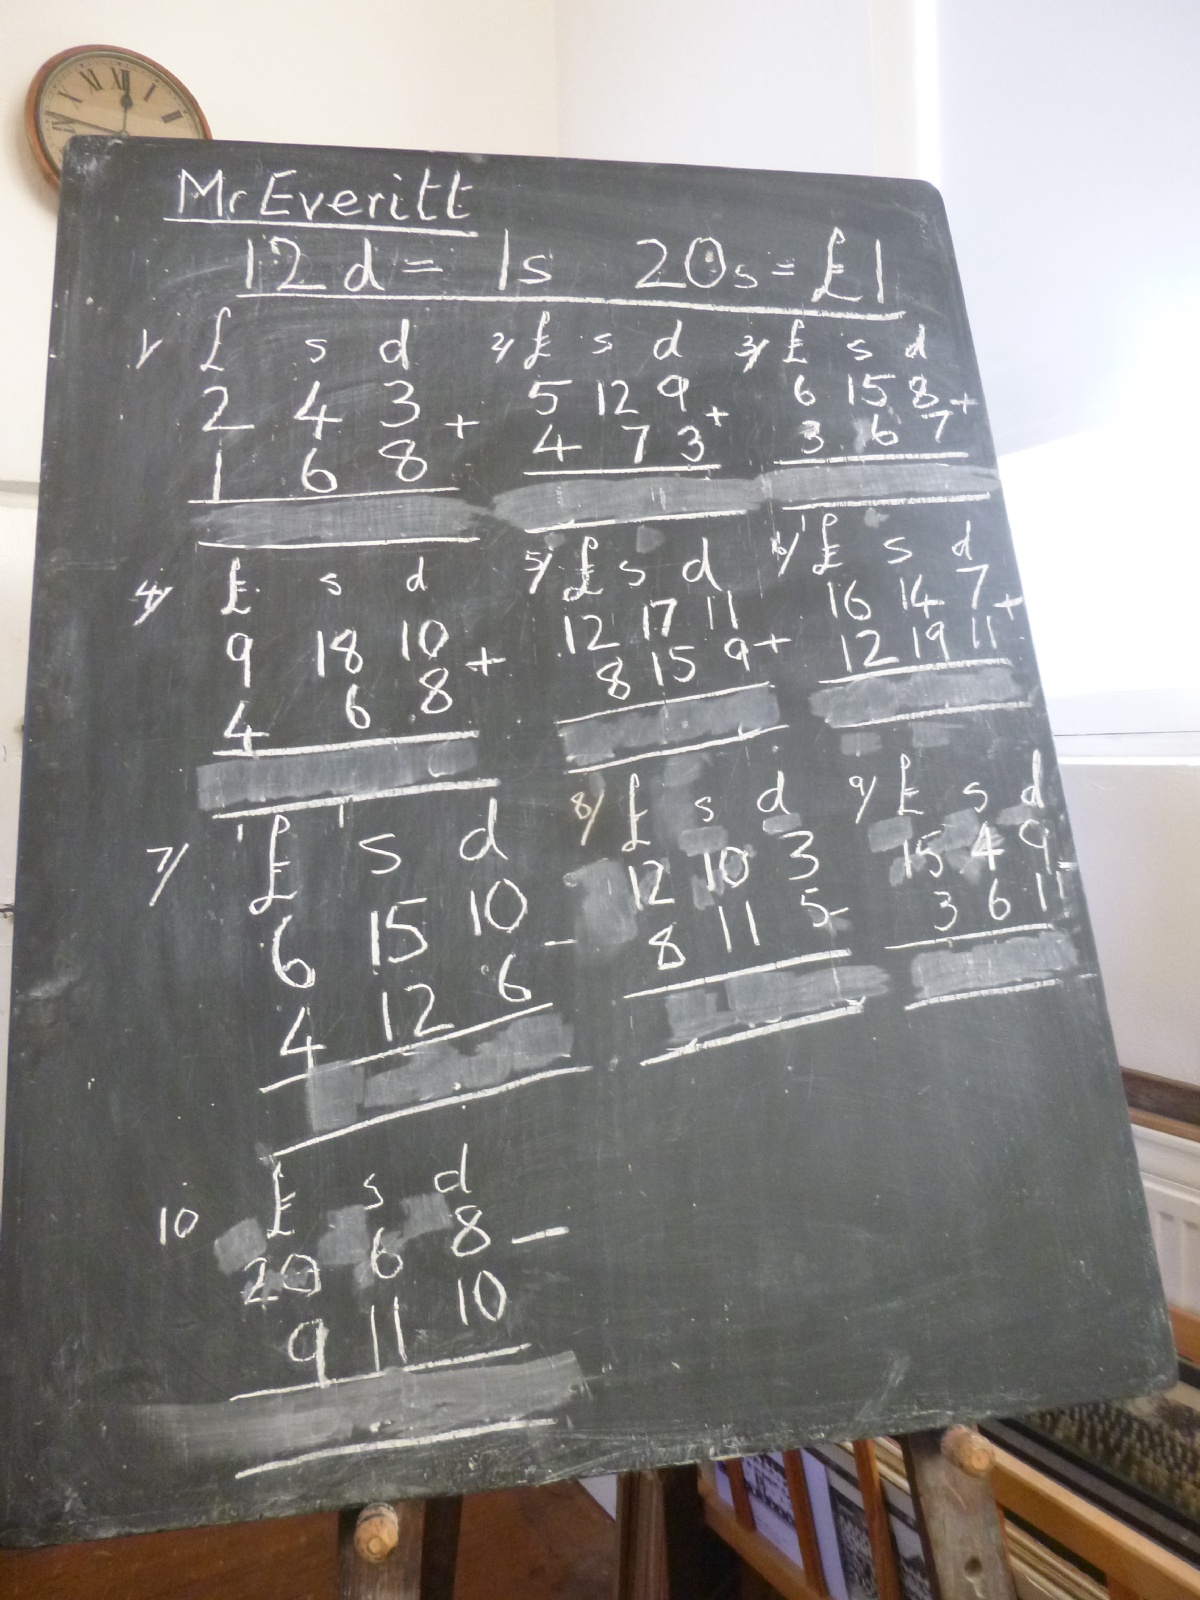 Mr Everitt
12 d = 1s 20s = £1
1/ £ s d
2 4 3 +
1 6 8
2/ £ s d
5 12 9 +
4 7 3
3/ £ s d
6 15 8 +
3 6 7
4/ £ s d
9 18 10 +
4 6 8
5/ £ s d
12 17 11
8 15 9 +
6/ £ s d
16 14 7 +
12 19 11
7/ £ s d
6 15 10 -
4 12 6
8/ £ s d
12 10 3
8 11 5 -
9/ £ s d
15 4 9 -
3 6 11
10 £ s d
20 6 8 -
9 11 10